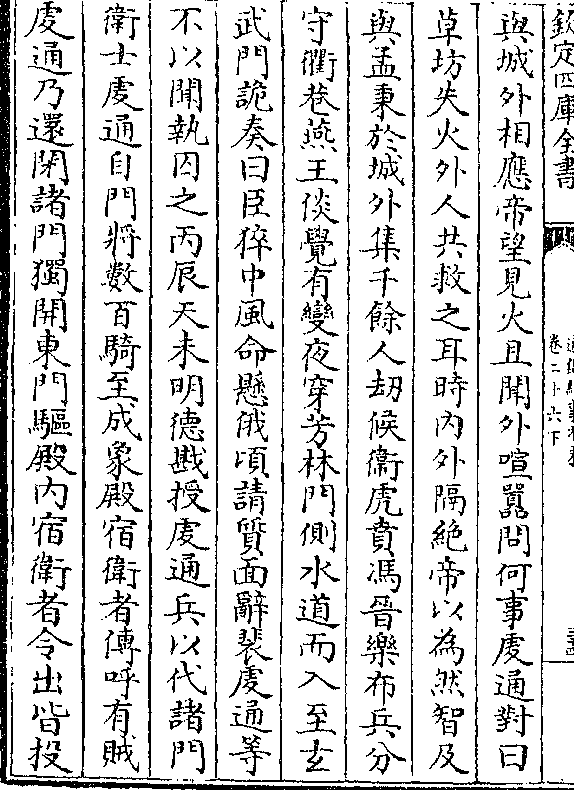 欽定四庫全書
卷二十六下
與城外相應帝望見火且聞外喧囂問何事處通對曰
草坊失火外人共救之耳時内外隔絶帝以為然智及
與孟秉於城外集千餘人刼候衛虎賁馮晉樂布兵分
守衢巷燕王倓覺有變夜穿芳林門側水道而入至玄
武門詭奏曰臣猝中風命懸俄頃請質面辭裴處通等
不以聞執囚之丙辰天未明德戡授處通兵以代諸門
衛士處通自門將數百騎至成象殿宿衛者傳呼有賊
處通乃還閉諸門獨開東門驅殿内宿衛者令出皆投